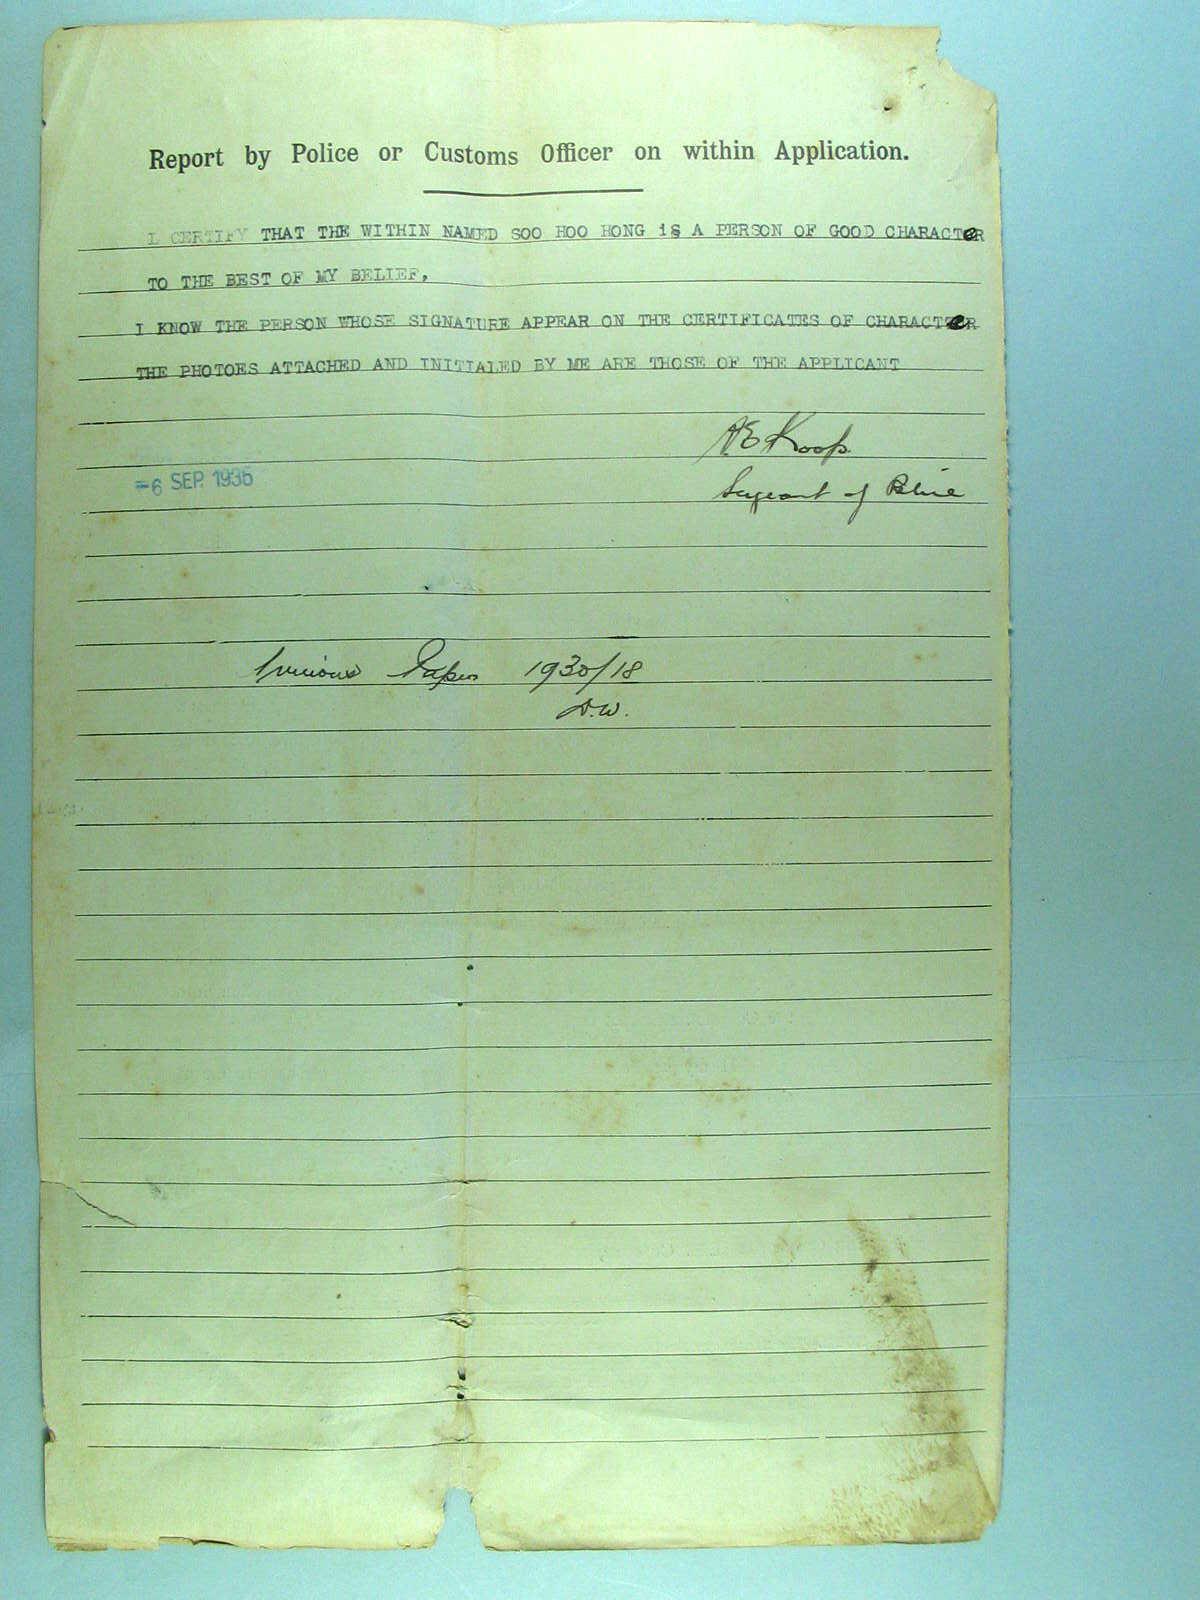 Report by Police or Customs Officer on within Application.
I CERTIFY THAT THE WITHIN NAMED SOO HOO HONG iS A PERSON OF GOOD CHARACTeR
TO THE BEST OF MY BELIEF,
I KNOW THE PERSON WHOSE SIGNATURE APPEAR ON THE CERTIFICATES OF CHARACTeR
THE PHOTOES ATTACHED AND INITIALED BY ME ARE THOSE OF THE APPLICANT
A E Koop
Sergeant of Police
-6 SEP. 1935
Previous Papers 1930/18
D.W.